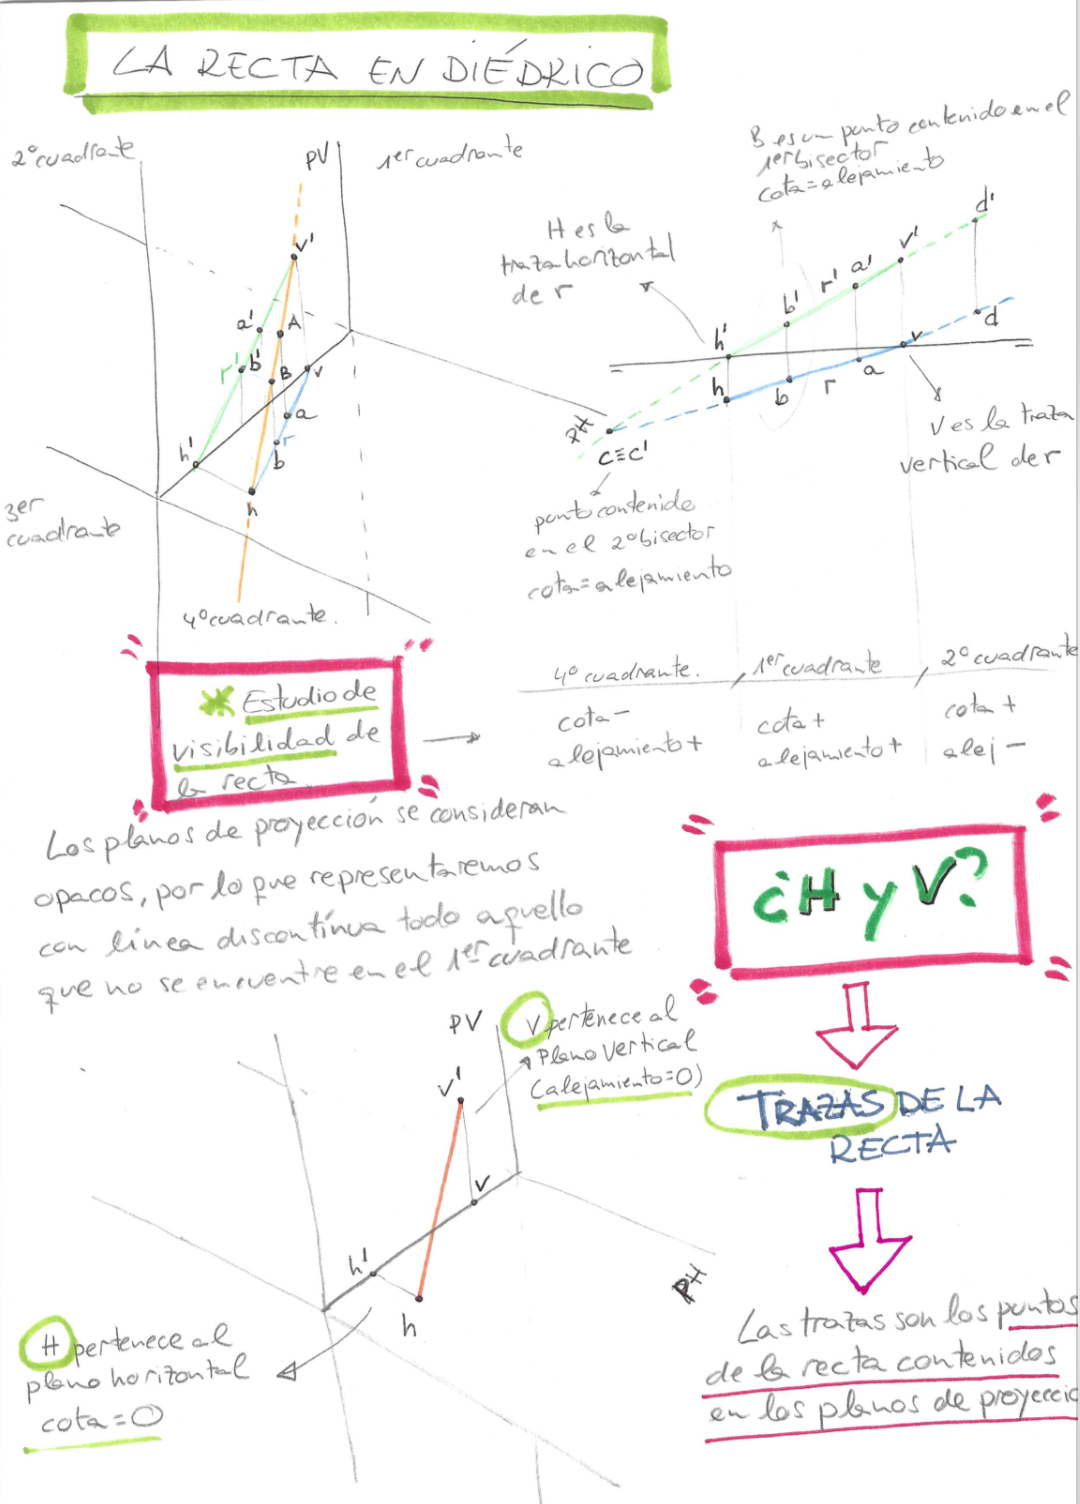 LA RECTA EN DIÉDRICO
2º cuadrante
PV
1er cuadrante
v'
a'
A
r'
b'
B
v
a
r
h'
b
h
PH
3er
cuadrante
4º cuadrante.
B es un punto contenido en el
1er bisector
cota=alejamiento
H es la
traza horizontal
de r
d'
v'
a'
r'
b'
h'
d
v
a
r
b
h
c≡c'
V es la traza
vertical de r
punto contenido
en el 2º bisector
cota=alejamiento
4º cuadrante. , 1er cuadrante , 2º cuadrante
cota - cota + cota +
alejamiento + alejamiento + alej -
* Estudio de
visibilidad de
la recta
Los planos de proyección se consideran
opacos, por lo que representaremos
con línea discontínua todo aquello
que no se encuentre en el 1er cuadrante
¿H y V?
TRAZAS DE LA
RECTA
Las trazas son los puntos
de la recta contenidos
en los planos de proyecció
PV
V pertenece al
Plano vertical
(alejamiento=0)
v'
v
h'
h
PH
H pertenece al
plano horizontal
cota=0